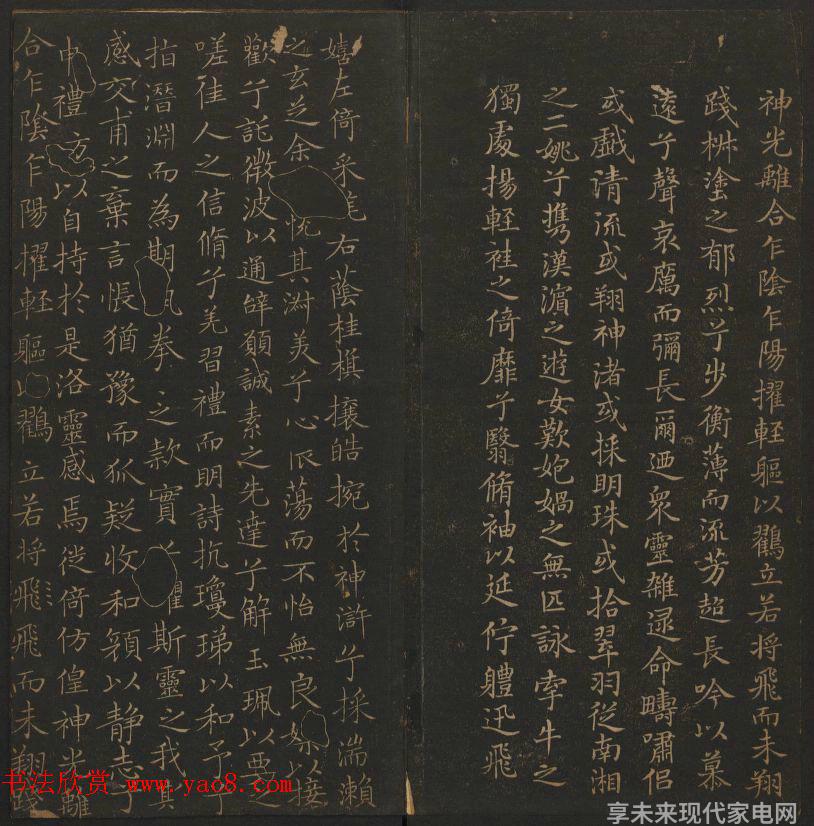 神光離合乍陰乍陽擢輕軀以鸖立若將飛而未翔
踐椒塗之郁烈兮步衡薄而流芳超長吟以慕
遠兮聲哀厲而彌長爾迺眾靈雜遝命疇嘯侶
或戲清流或翔神渚或採明珠或拾翠羽從南湘
之二姚兮攜漢濵之遊女歎匏媧之無匹詠牽牛之
獨處揚輕袿之倚靡兮翳脩袖以延佇軆迅飛
嬉左倚采旄右蔭桂旗攘皓捥於神滸兮採湍瀨
之玄芝余悅其淑美兮心振蕩而不怡無良媒以接
歡兮託微波以通辭願誠素之先達兮解玉珮以要之
嗟佳人之信脩兮羌習禮而明詩抗瓊珶以和予兮
指潛淵而為期執拳之款實兮懼斯靈之我其
感交甫之棄言悵猶豫而狐疑收和顏以静志兮
申禮防以自持於是洛靈感焉徙倚仿偟神光離
合乍陰乍陽擢輕軀以鸖立若將飛飛而未翔踐
书法欣赏 www.yac8.com
享未来现代家电网